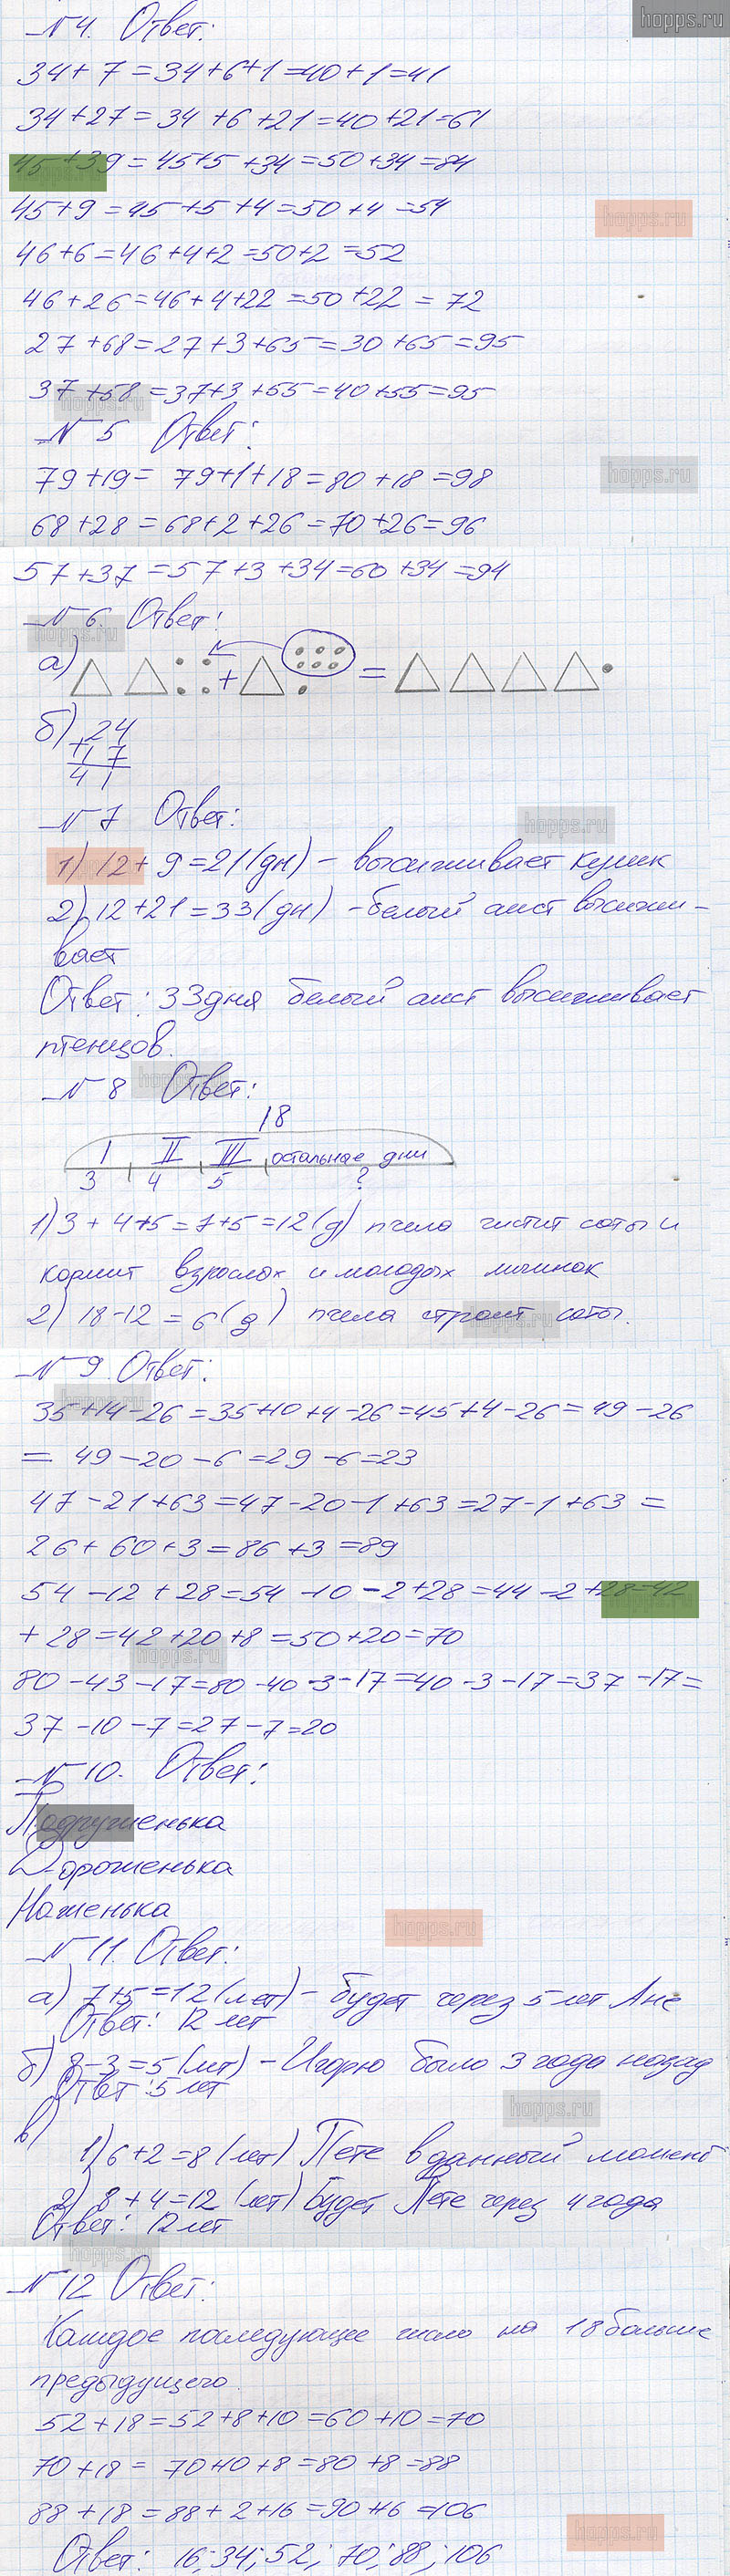 hopps.ru
№ 4. Ответ:
34 + 7 = 34+6+1 = 40+1 = 41
34 + 27 = 34 + 6 + 21 = 40 + 21 = 61
45 + 39 = 45+5 + 34 = 50 + 34 = 84
45 + 9 = 45 + 5 + 4 = 50 + 4 = 54
hopps.ru
46 + 6 = 46 + 4 + 2 = 50 + 2 = 52
46 + 26 = 46 + 4 + 22 = 50 + 22 = 72
27 + 68 = 27 + 3 + 65 = 30 + 65 = 95
37 + 58 = 37+3 + 55 = 40 + 55 = 95
hopps.ru
№ 5 Ответ:
79 + 19 = 79+1+18 = 80 + 18 = 98
hopps.ru
68 + 28 = 68+2 + 26 = 70 + 26 = 96
57 + 37 = 57 + 3 + 34 = 60 + 34 = 94
№ 6. Ответ:
hopps.ru
а) + =
б) 24
+ 17
41
№ 7 Ответ:
hopps.ru
1) 12 + 9 = 21 (дн) – высиживает кулик
2) 12 + 21 = 33 (дн) – белый аист высижи-
вает
Ответ: 33 дня белый аист высиживает
птенцов.
№ 8 Ответ:
hopps.ru
18
I II III остальные дни
3 4 5 ?
1) 3 + 4 + 5 = 7 + 5 = 12 (д) пчела чистит соты и
кормит взрослых и молодых личинок
2) 18 – 12 = 6 (д) пчела строит соты.
hopps.ru
№ 9. Ответ:
hopps.ru
35 + 14 – 26 = 35+10 + 4 – 26 = 45 + 4 – 26 = 49 – 26
= 49 – 20 – 6 = 29 – 6 = 23
47 – 21 + 63 = 47 – 20 – 1 + 63 = 27 – 1 + 63 =
26 + 60 + 3 = 86 + 3 = 89
54 – 12 + 28 = 54 – 10 – 2 + 28 = 44 – 2 + 28 = 42
+ 28 = 42 + 20 + 8 = 50 + 20 = 70
hopps.ru
80 – 43 – 17 = 80 – 40 – 3 – 17 = 40 – 3 – 17 = 37 – 17 =
37 – 10 – 7 = 27 – 7 = 20
№ 10. Ответ:
Подруженька
Дороженька
Ноженька
hopps.ru
№ 11. Ответ:
а) 7+5 = 12 (лет) – будет через 5 лет Ане
Ответ: 12 лет
б) 8 – 3 = 5 (лет) – Игорю было 3 года назад
Ответ: 5 лет
hopps.ru
в)
1) 6 + 2 = 8 (лет) Пете в данный момент
2) 8 + 4 = 12 (лет) Будет Пете через 4 года
Ответ: 12 лет
hopps.ru
№ 12 Ответ:
Каждое последующее число на 18 больше
предыдущего.
52 + 18 = 52 + 8 + 10 = 60 + 10 = 70
70 + 18 = 70+10 + 8 = 80 + 8 = 88
88 + 18 = 88 + 2 + 16 = 90 + 16 = 106
hopps.ru
Ответ: 16; 34; 52; 70; 88; 106